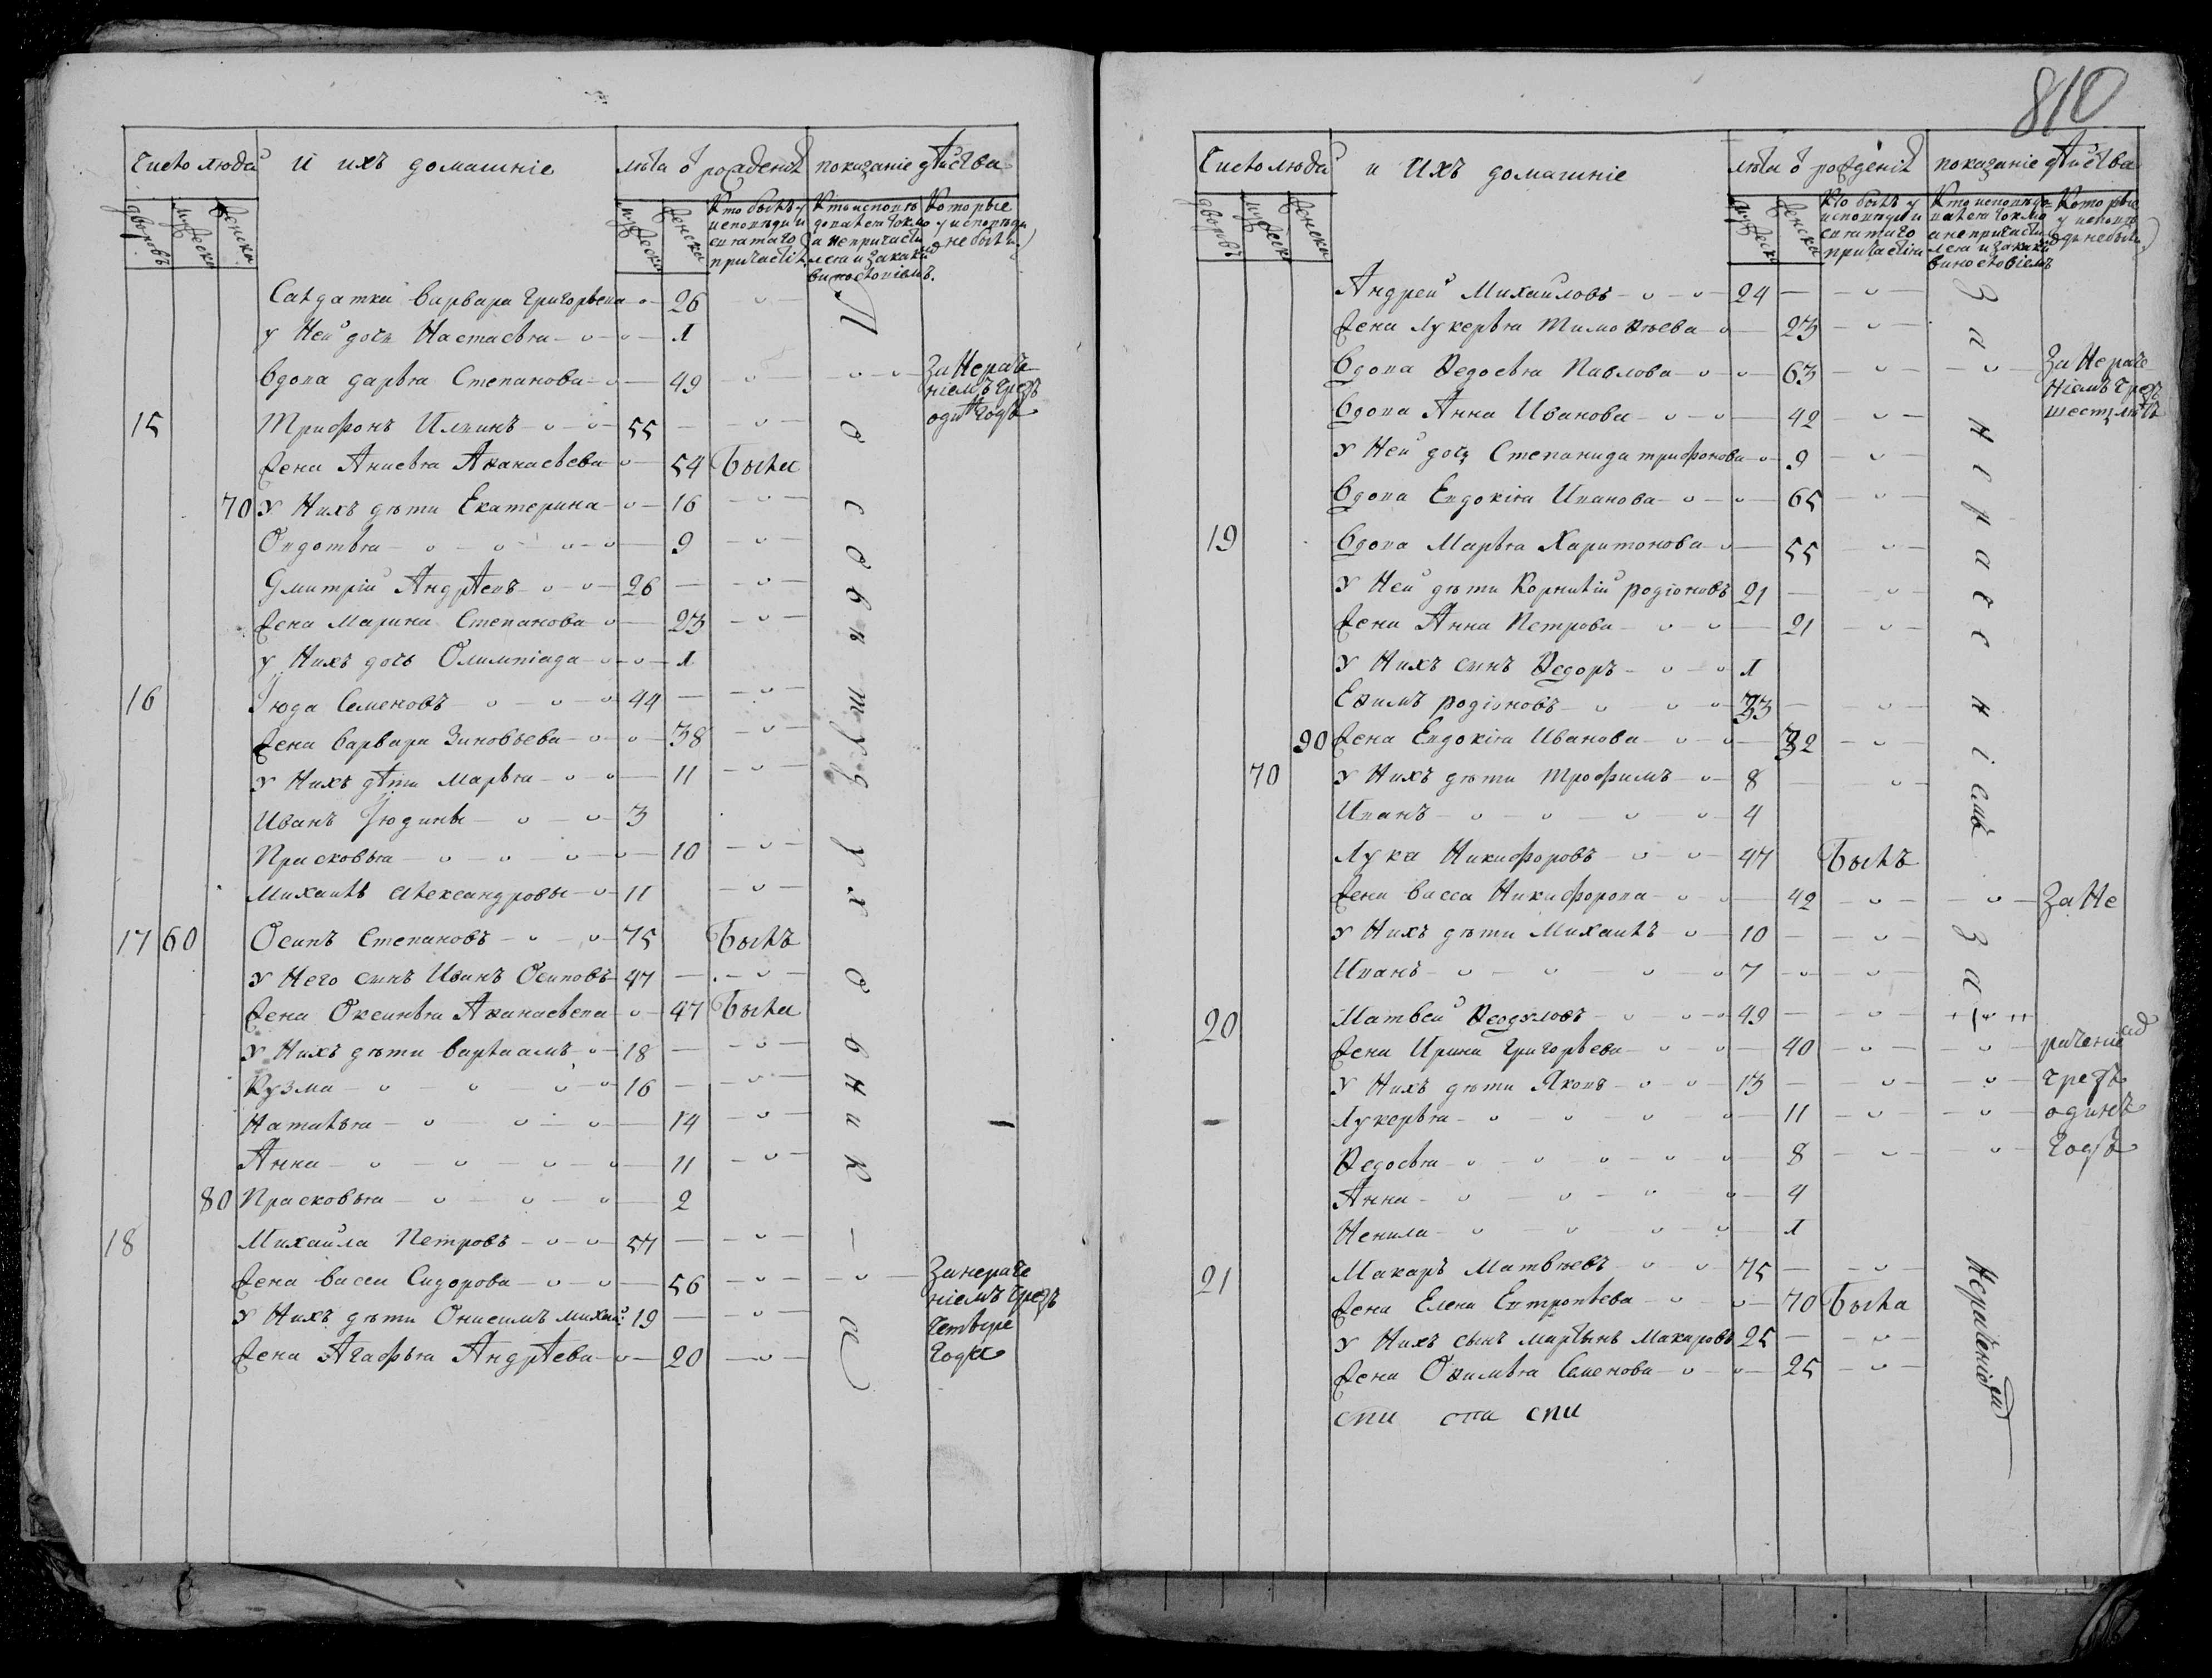 810
Число людей и ихъ домашніе лѣта ѿ рожденія показаніе дѣйства
дворовъ мужеска женска мужеска женска
Кто былъ у исповѣди и святаго причастія
Кто исповѣдовался токмо а не причастился и за какимъ винословіемъ
Которые у исповѣди не были
Салдатка Варвара Григорьева 26
у Ней дочь Настасья 1
Вдова дарья Степанова 49 За Нераченіемъ чрезъ одинъ годъ
15 Трифонъ Илиинъ 55
жена Анисья Аѳанасьева 54 Была
70 У Нихъ дѣти Екатерина 16
Ѳедотья 9
Дмитрій Андрѣевъ 26
жена Марина Степанова 23
у Нихъ дочь Олимпіада 1
16 Июда Семеновъ 44
жена Варвара Зиновьева 38
У Нихъ дѣти Марья 11
Иванъ Июдины 3
Прасковья 10
Михаилъ Александровы 11
17 60 Осипъ Степановъ 75 Былъ
У Него сынъ Иванъ Осиповъ 47
жена Оксинья Аѳанасьева 47 Была
У Нихъ дѣти Варлаамъ 18
Кузма 16
Наталья 14
Анна 11
80 Прасковья 2
18 Михайла Петровъ 57
жена Васса Сидорова 56 За нераченіемъ чрезъ четыре года
У Нихъ дѣти Онисимъ михай: 19
жена Агафья Андрѣева 20
По совѣту духовника
Число людей и Ихъ домашніе лѣта ѿ рожденія показаніе дѣйства
дворовъ мужеска женска мужеска женска
Кто былъ у исповѣди и святаго причастія
Кто исповѣдовался токмо а не причастился и за какимъ винословіемъ
Которые у исповѣди не были
Андрей Михайловъ 24
жена лукерья Тимоѳѣева 23
Вдова Ѳедосья Павлова 63 За Нераченіемъ чрезъ шесть лѣтъ
Вдова Анна Иванова 42
У Ней дочь Степанида трифонова 9
Вдова Евдокія Иванова 65
19 Вдова Марья Харитонова 55
У Ней дѣти Корнилій родіоновъ 21
жена Анна Петрова 21
У Нихъ сынъ Ѳедоръ 1
Еѳимъ родіоновъ 33
90 жена Евдокія Иванова 32
70 У Нихъ дѣти Трофимъ 8
Иванъ 4
Лука Никифоровъ 47 Былъ
жена Васса Никифорова 42 За Не
У Нихъ дѣти Михаилъ 10
Иванъ 7
20 Матвей Ѳеодуловъ 49
жена Ирина Григорьева 40 раченіемъ
У Нихъ дѣти Яковъ 13 чрезъ
Лукерья 11 одинъ
Ѳедосья 8 годъ
Анна 4
Ненила 1
21 Макаръ Матвѣевъ 75
жена Елена Евтропьева 70 Была
У Нихъ сынъ мартынъ Макаровъ 25
жена Оѳимья Семенова 25
За нераченіемъ
За
Нераченіемъ